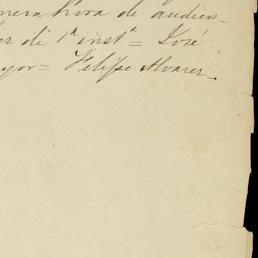 mera hora de audien-
ez de 1ª instª = José
yor = Felipe Alvarez